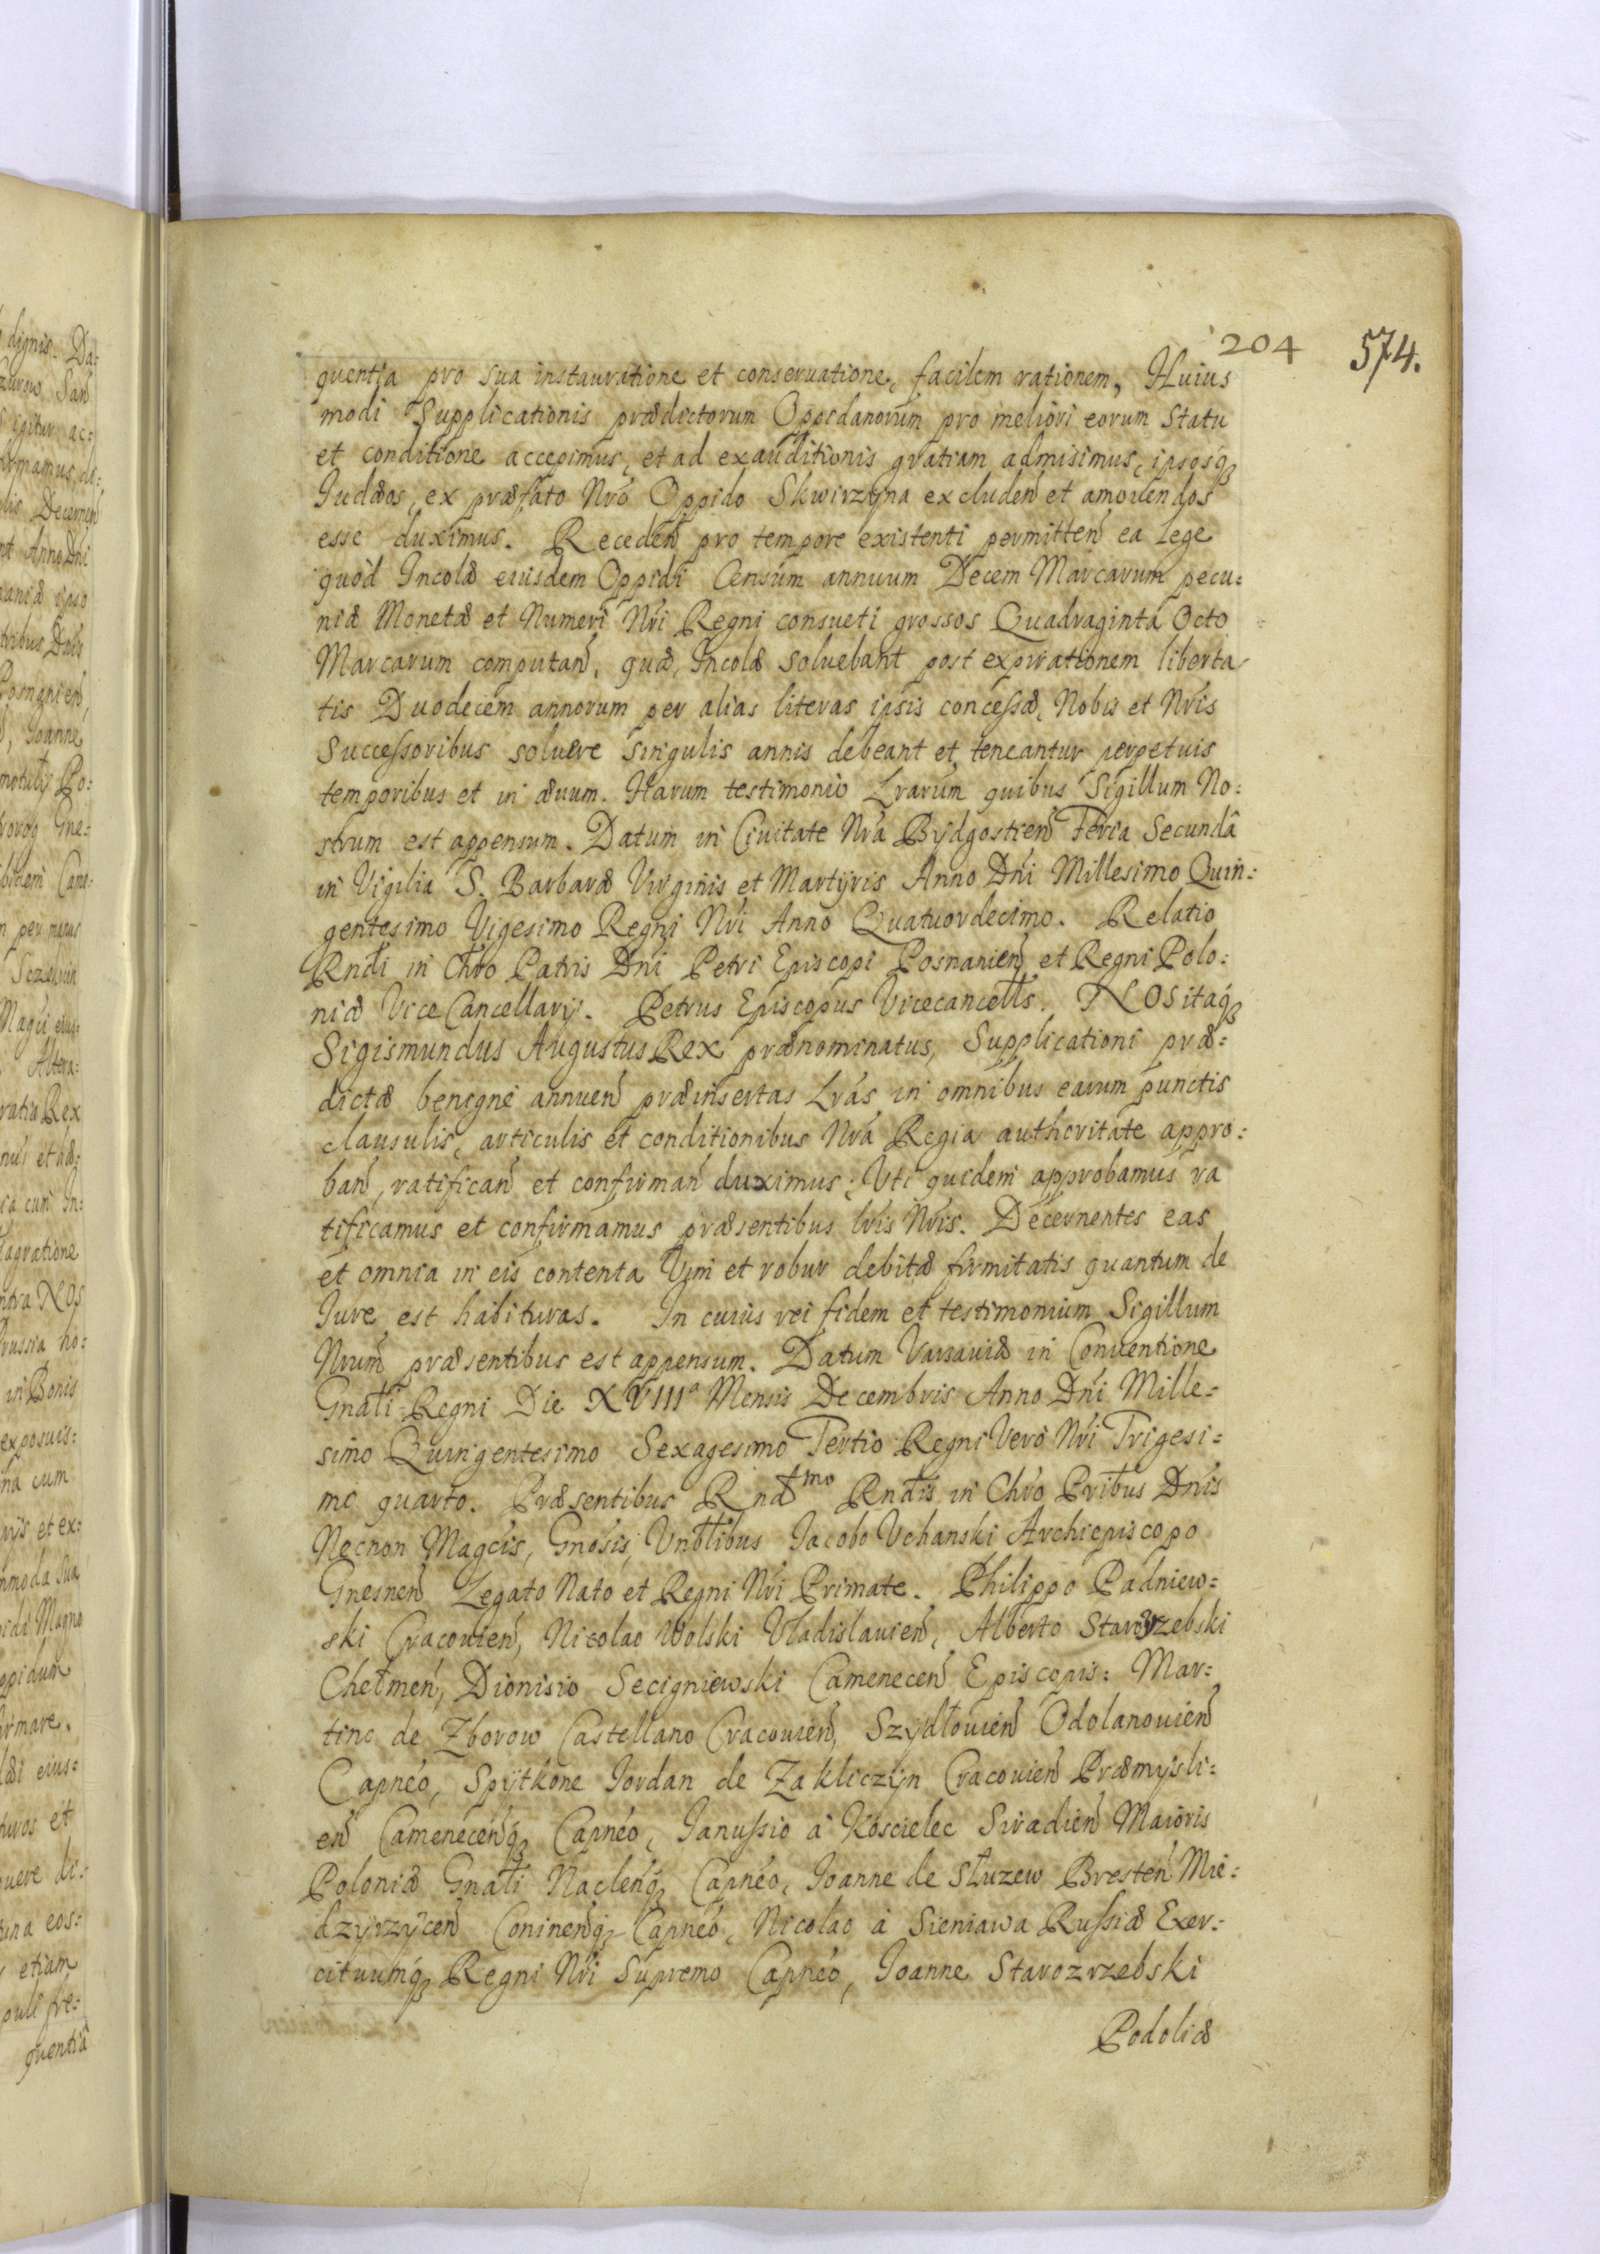 204 574.
quentia pro sua instauratione et conseruatione, facilem rationem, Huius
modi Supplicationis prædictorum Oppidanorum pro meliori eorum statu
et conditione accepimus, et ad exauditionis gratiam admisimus, ipsosq́
Iudæos, ex præfato Nrō Oppido Skwirzyna excluden̄ et amouendos
esse duximus. Receden̄ pro tempore existenti permitten̄ ea Lege
quòd Incolæ eiusdem Oppidi Censum annuum Decem Marcarum pecu:
niæ Monetæ et Numeri Nrī Regni consueti grossos Quadraginta Octo
Marcarum computan̄, quæ, Incolæ soluebant post expirationem liberta
tis Duodecem annorum per alias literas ipsis concessæ, Nobis et Nrīs
Successoribus soluere singulis annis debeant et teneantur perpetuis
temporibus et in æuum. Harum testimonio Lrarum quibus Sigillum No:
strum est appensum. Datum in Ciuitate Nrā Bydgostien̄ Feria Secundâ
in Vigilia S. Barbaræ Virginis et Martyris Anno Dnī Millesimo Quin:
gentesimo Vigesimo Regni Nrī Anno Quatuordecimo. Relatio
Rndī in Chrō Patris Dnī Petri Episcopi Posnanien̄ et Regni Polo:
niæ Vice Cancellarij. Petrus Episcopus Vicecancells. NOS itaq́
Sigismundus Augustus Rex prænominatus, Supplicationi præ:
dictæ benignè annuen̄ præinsertas Lrās in omnibus earum punctis
clausulis, articulis et conditionibus Nrā Regia authoritate appro:
ban̄, ratifican̄ et confirman̄ duximus: Vti quidem approbamus ra
tificamus et confirmamus præsentibus lrīs Nrīs. Decernentes eas
et omnia in eis contenta Vim et robur debitæ firmitatis quantum de
Iure est habituras. In cuius rei fidem et testimonium Sigillum
Nrum̄ præsentibus est appensum. Datum Varsauiæ in Conuentione
Gnālī Regni Die XVIIIª Mensis Decembris Anno Dnī Mille:
simo Quingentesimo Sexagesimo Tertio Regni Verò Nrī Trigesi:
mo quarto. Præsentibus Rndmo Rndīs in Chrō Prībus Dnīs
Necnon Magcīs, Gnōsis, Vnblībus Iacobo Vchanski Archiepiscopo
Gnesnen̄ Legato Nato et Regni Nrī Primate. Philippo Padniew:
ski Cracouien̄, Nicolao Wolski Vladislauien̄, Alberto Starozrzebski
Chełmen̄, Dionisio Secigniewski Camenecen̄ Episcopis: Mar:
tino de Zborow Castellano Cracouien̄, Szydłouien̄ Odolanouien̄
Capnēo, Spytkone Iordan de Zakliczyn Cracouien̄ Præmysli:
en̄ Camenecen̄q́ Capnēo, Ianussio à Kościelec Siradien̄ Maioris
Poloniæ Gnālī Naclen̄q́ Capnēo, Ioanne de Służew Bresten̄ Mie:
dzyrzycen̄ Coninen̄q́ Capnēo, Nicolao à Sieniawa Russiæ Exer:
cituumq́ Regni Nrī Supremo Capnēo, Ioanne Starozrzebski
Podoliæ